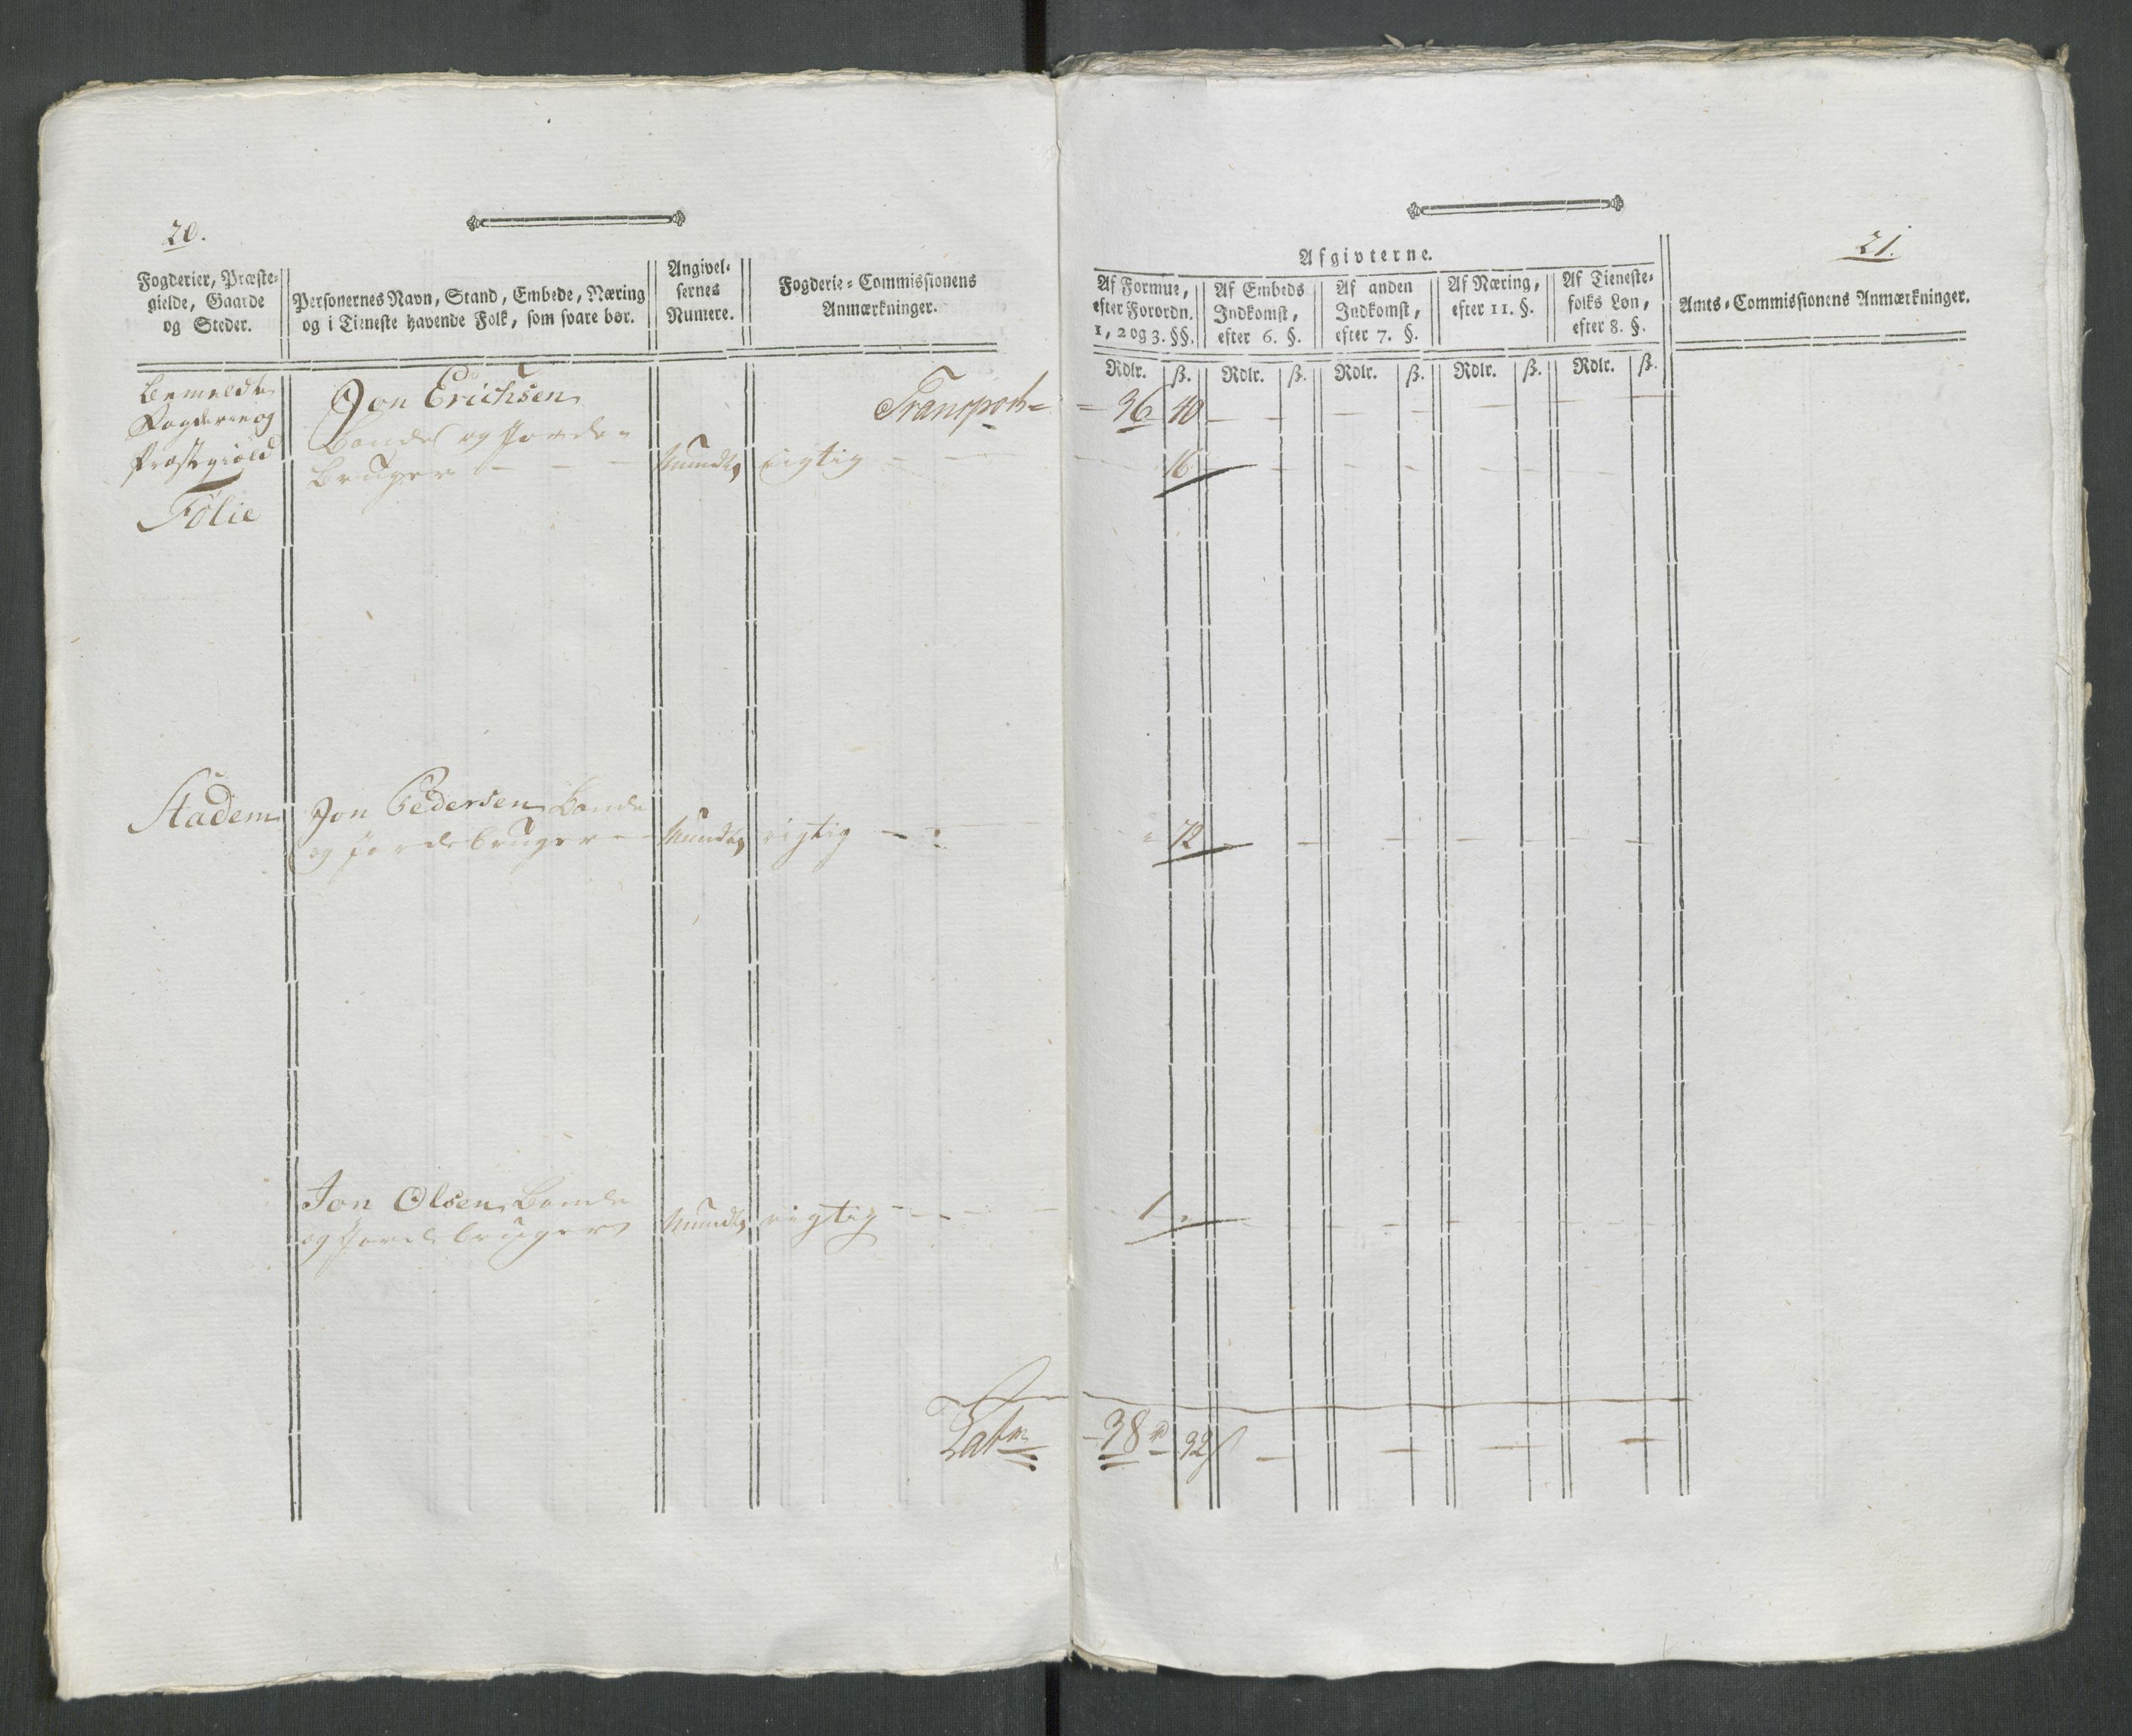 20.
Fogderier, Præste-
gielde, Gaarde
og Steder.
Personernes Navn, Stand, Embede, Næring
og i Tieneste havende Folk, som svare bør.
Angivel-
sernes
Numere.
Fogderie-Commissionens
Anmærkninger.
Bemeldte
Fogderie og
Præstegield
Følie
Jon Erichsen
Bonde og Jorde-
bruger - - -
Mundtlig
rigtig - -
Transport =
Stadem
Jon Pedersen Bonde
og Jordebruger -
Mundtlig
rigtig - -
Jon Olsen Bonde
og Jordebruger
Mundtlig
rigtig - - -
Latus
21.
Afgivterne.
Af Formue,
efter Forordn.
1, 2 og 3. §§.
Af Embeds
Indkomst,
efter 6. §.
Af anden
Indkomst,
efter 7. §.
Af Næring,
efter 11. §.
Af Tieneste-
folks Løn,
efter 8. §.
Amts-Commissionens Anmærkninger.
Rdlr. ß. Rdlr. ß. Rdlr. ß. Rdlr. ß. Rdlr. ß.
- 36 40 - - - - - - - -
16 - - - - - - - -
" 72 - - - - - - - -
1 " - - - - - - - -
- 38 rd 32 ß - - - -